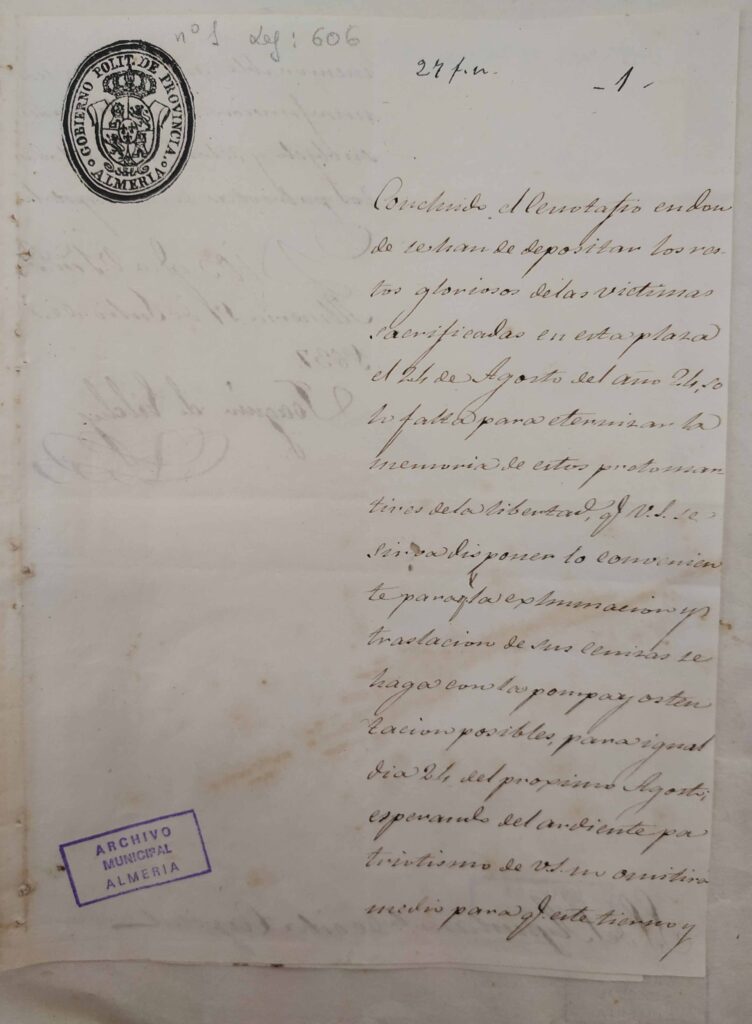 nº 1 Leg: 606
27 f.u.
-1-
GOBIERNO POLIT. DE PROVINCIA.
ALMERIA
Concluido el Cenotafio en don
de se han de depositar los res
tos gloriosos de las victimas
sacrificadas en esta plaza
el 24 de Agosto del año 24, so
lo falta para eternizar la
memoria de estos protomar
tires de la libertad, q.e V.S. se
sirva disponer lo convenien
te para q.e la exhumacion y
traslacion de sus cenizas se
haga con la pompa y osten
tacion posibles, para igual
dia 24 del proximo Agosto;
esperando del ardiente pa
triotismo de V.S. no omitira
medio para q.e este tierno y
ARCHIVO
MUNICIPAL
ALMERIA